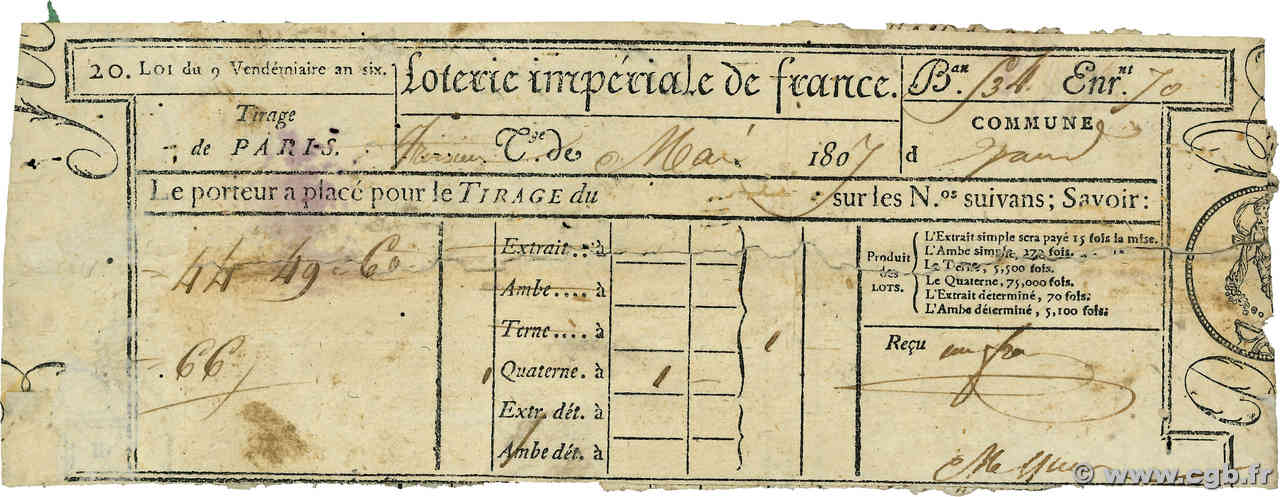 20. Loi du 9 Vendémiaire an six.
Loterie impériale de france.
Ban. Enr.nt 70
Tirage
de PARIS.
T.ge de Mai 1807
COMMUNE
d
Le porteur a placé pour le TIRAGE du sur les N.os suivans; Savoir:
44 49 60
66
Extrait... à
Ambe.... à
Terne.... à
1 Quaterne. à 1 1
Extr. dét. à
Ambe dét. à
Produit des LOTS.
L'Extrait simple sera payé 15 fois la mise.
L'Ambe simple, 270 fois.
Le Terne, 5,500 fois.
Le Quaterne, 75,000 fois.
L'Extrait déterminé, 70 fois.
L'Ambe déterminé, 5,100 fois.
Reçu un fra
© www.cgb.fr